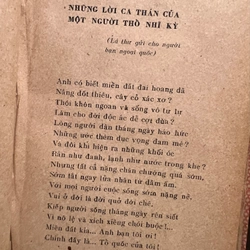 NHỮNG LỜI CA THÁN CỦA
MỘT NGƯỜI THỔ NHĨ KỲ
(Lá thư gửi cho người
bạn ngoại quốc)
Anh có biết miền đất đai hoang đã
Nắng đốt thiêu, cây cỏ xác xơ?
Thói khôn ngoan và sống vô tư lự
Làm cho đời độc ác dễ cợt đùa?
Lòng người dân tháng ngày háo hức
Những ước thèm dục vọng đam mê?
Và đôi khi hiện ra những khối óc
Rắn như đanh, lạnh như nước trong khe?
Nhưng tất cả nặng chán chường quá sớm,
Sớm tắt ngay lửa nhân từ đầm ấm.
Với mọi người cuộc sống sớm nặng nề,
Vui ở đời là đời quở đời chê,
Kiếp người sống tháng ngày rên siết
Vì nô lệ và xích xiềng chói buộc!..
Miền đất kia... Anh bạn tôi ơi!
Chính đấy là... Tổ quốc của tôi!